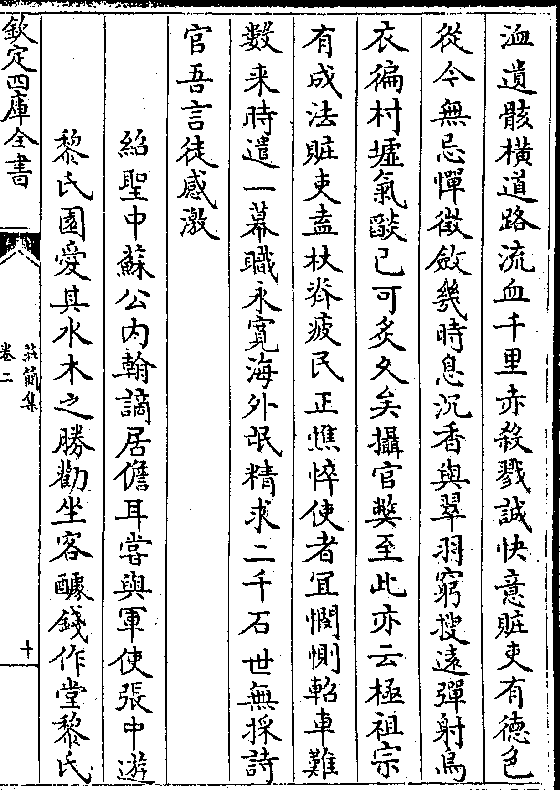 洫遺骸橫道路流血千里赤殺戮誠快意贓吏有德色
從今無忌憚徵斂幾時息沉香與翠羽窮搜遠彈射烏
衣徧村墟氣燄已可炙久矣攝官弊至此亦云極祖宗
有成法贓吏盡杖脊疲民正憔悴使者宜憫惻軺車難
數来時遣一幕職永寛海外氓精求二千石世無採詩
官吾言徒感激
紹聖中蘇公内翰謫居儋耳嘗與軍使張中遊
黎氏園愛其水木之勝勸坐客醵錢作堂黎氏
欽定四庫全書
莊簡集
卷二
十